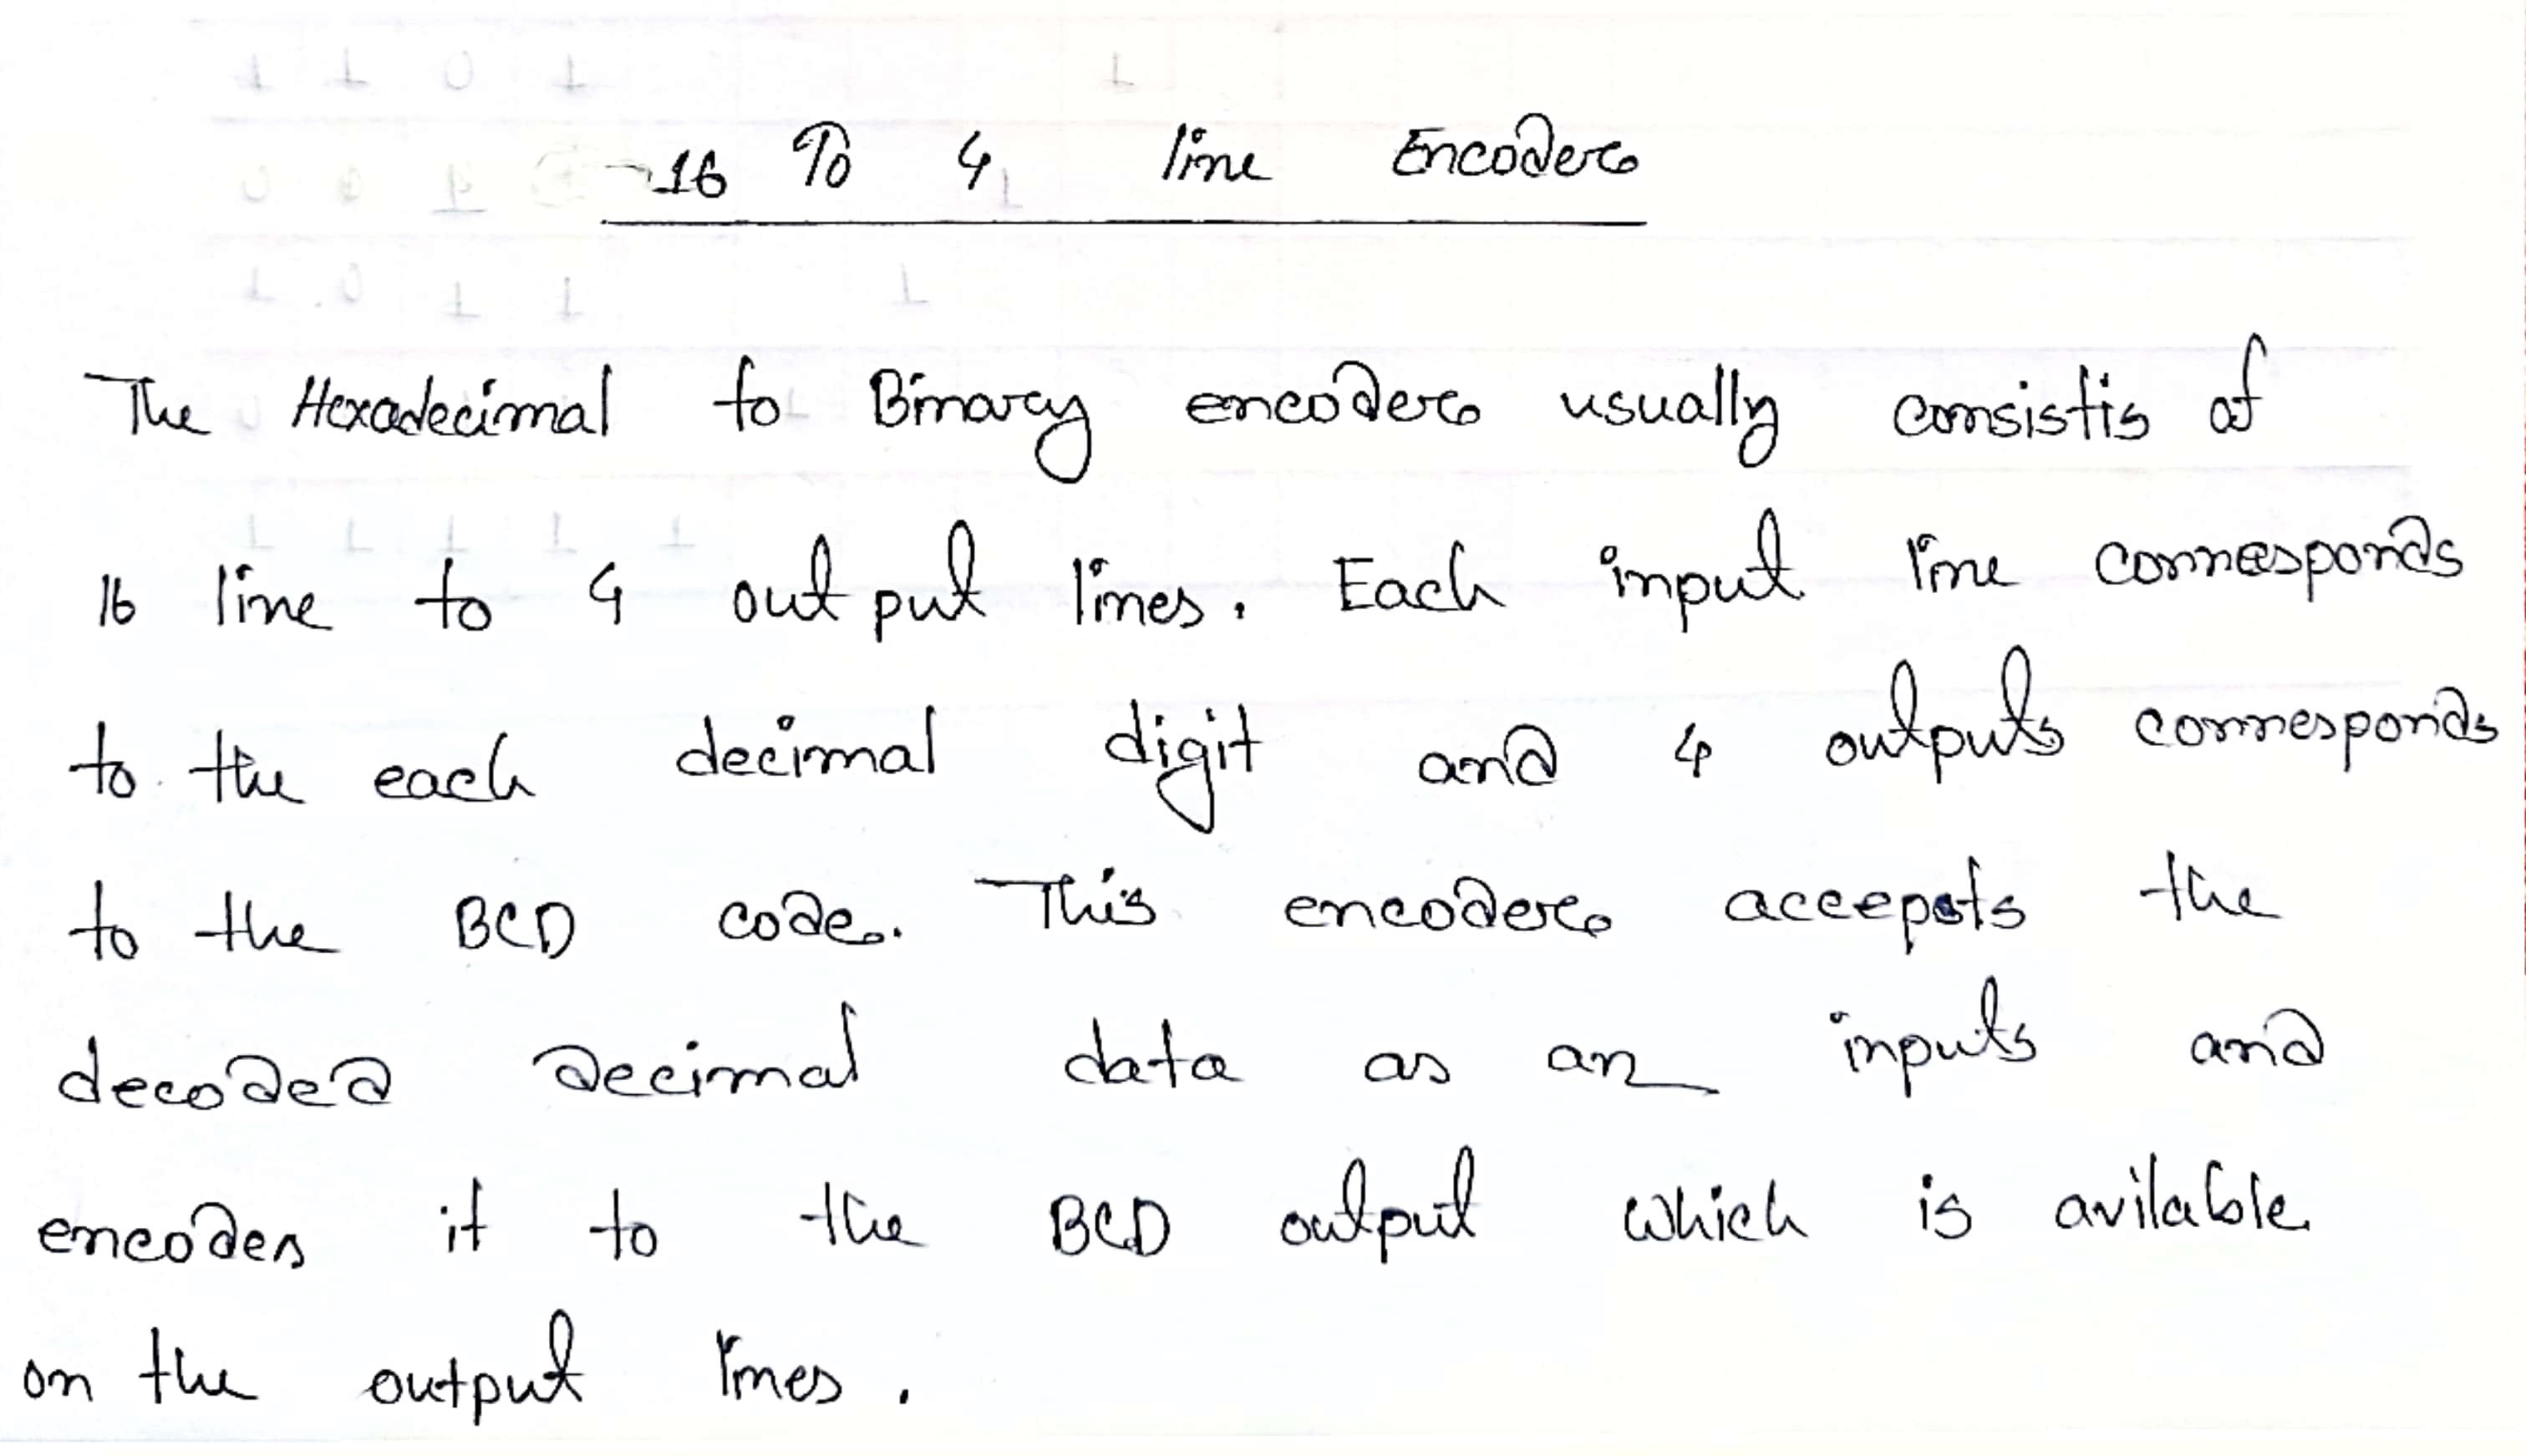 16 To 4 line Encoder
The Hexadecimal to Binary encoder usually consistis of
16 line to 4 out put lines. Each input line corresponds
to the each decimal digit and 4 outputs corresponds
to the BCD code. This encoder accepts the
decoded decimal data as an inputs and
encodes it to the BCD output which is avilable
on the output lines.